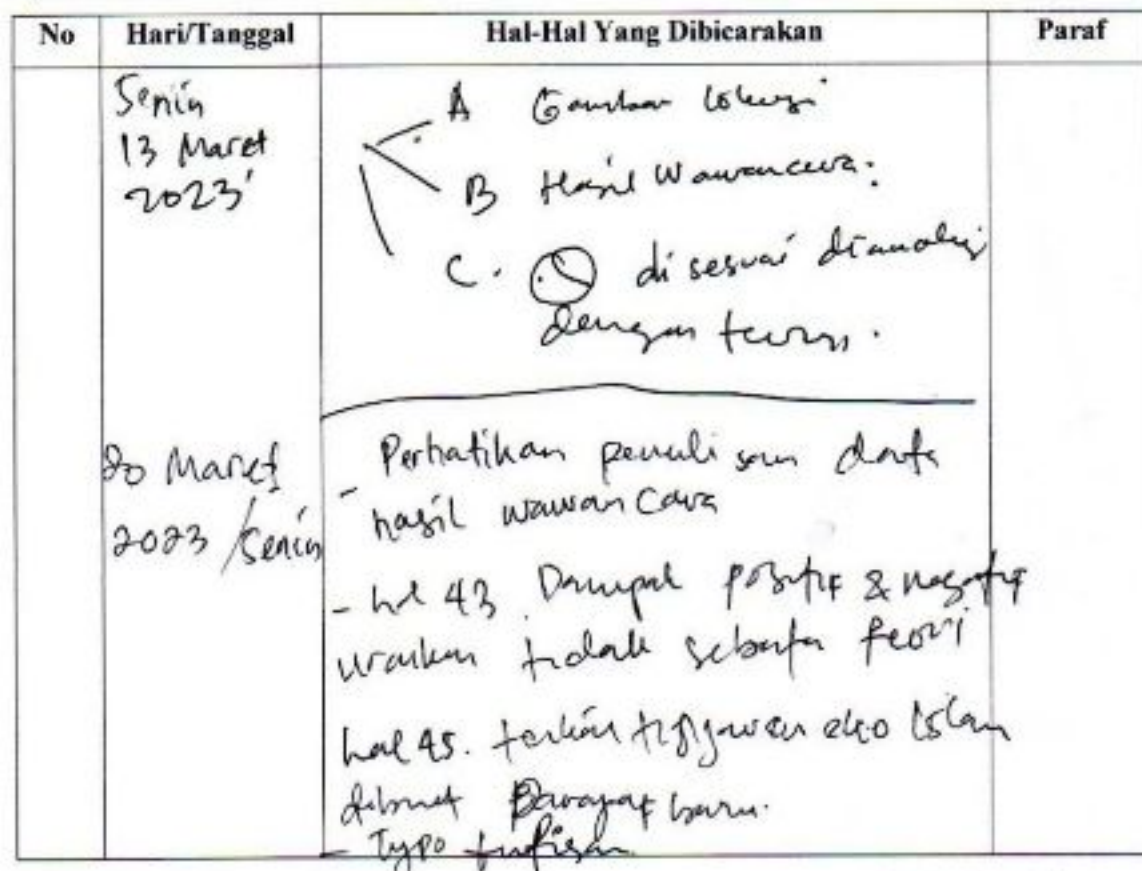 No Hari/Tanggal Hal-Hal Yang Dibicarakan Paraf
Senin
13 Maret
2023
A Gambaran lokasi
B Hasil Wawancara.
C. di sesuai dianalisis
dengan teori.
20 Maret
2023 / Senin
- Perhatikan penulisan data
hasil wawancara
- hal 43 Dampak positif & negatif
uraikan tidak sebatas teori
hal 45. terkait tinjauan eko Islam
dibuat Paragraf baru.
- Typo tulisan